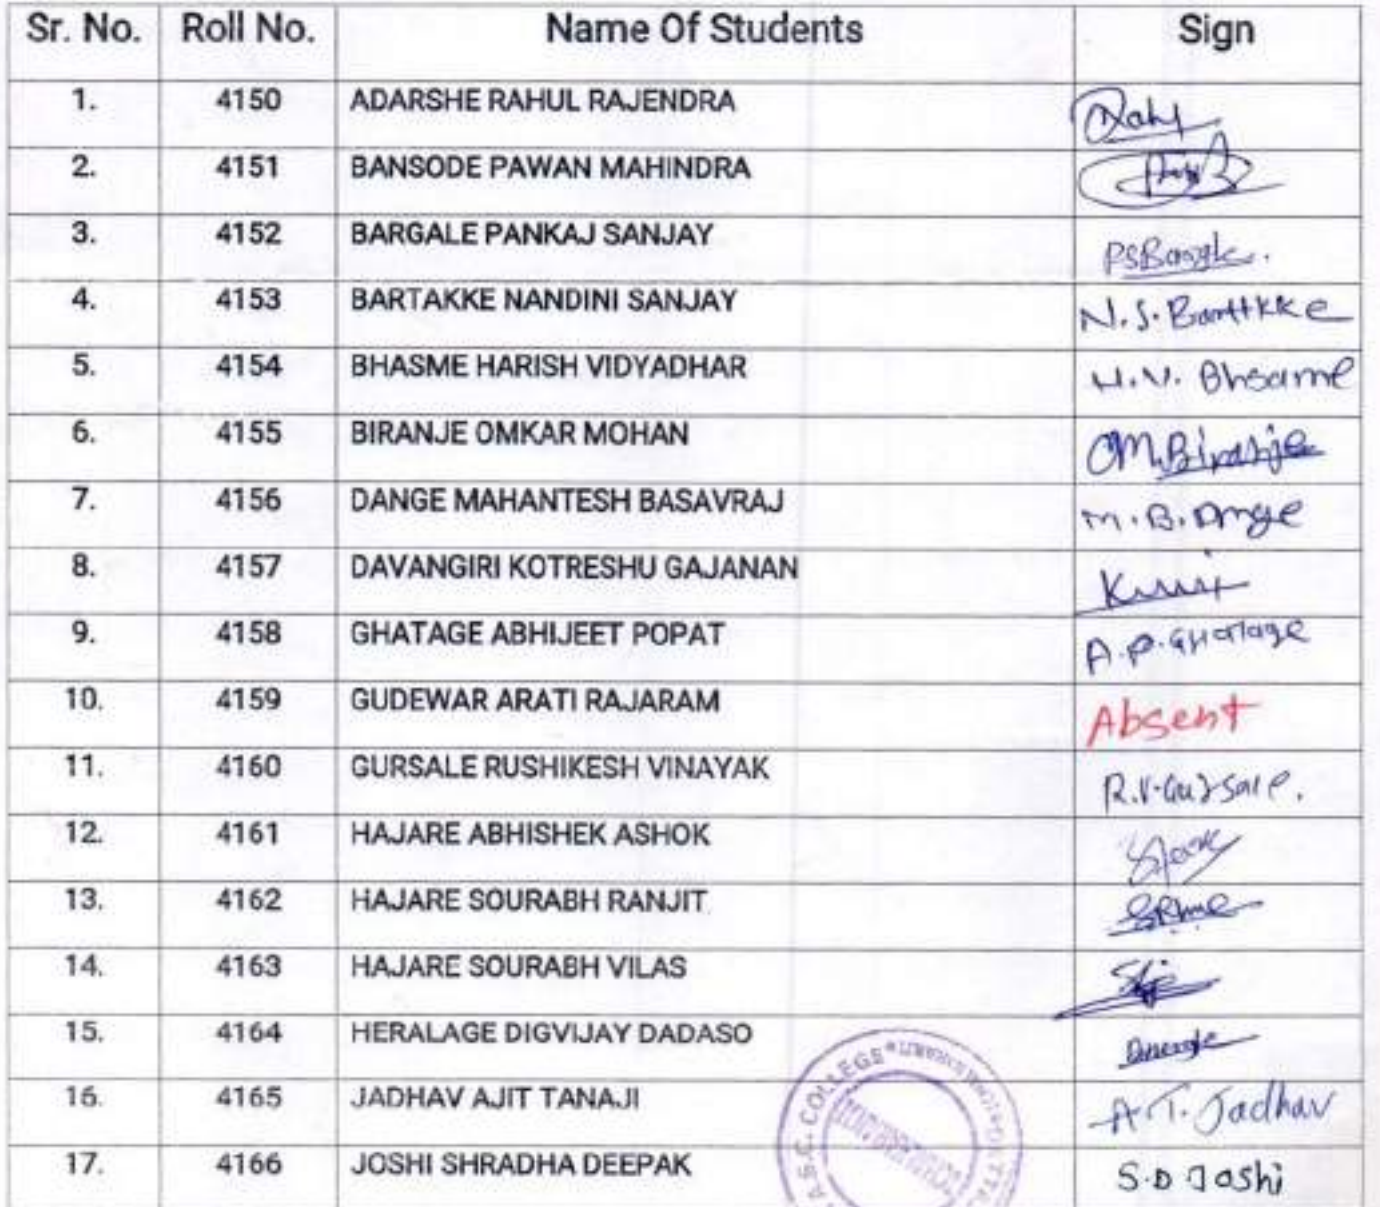 Sr. No. Roll No. Name Of Students Sign
1. 4150 ADARSHE RAHUL RAJENDRA
2. 4151 BANSODE PAWAN MAHINDRA
3. 4152 BARGALE PANKAJ SANJAY
4. 4153 BARTAKKE NANDINI SANJAY N.S.
5. 4154 BHASME HARISH VIDYADHAR H.V. Bhsame
6. 4155 BIRANJE OMKAR MOHAN OM.Biranje
7. 4156 DANGE MAHANTESH BASAVRAJ M.B.
8. 4157 DAVANGIRI KOTRESHU GAJANAN
9. 4158 GHATAGE ABHIJEET POPAT A.P.GHatage
10. 4159 GUDEWAR ARATI RAJARAM Absent
11. 4160 GURSALE RUSHIKESH VINAYAK R.V.Gursale.
12. 4161 HAJARE ABHISHEK ASHOK
13. 4162 HAJARE SOURABH RANJIT
14. 4163 HAJARE SOURABH VILAS
15. 4164 HERALAGE DIGVIJAY DADASO
16. 4165 JADHAV AJIT TANAJI A.T. Jadhav
17. 4166 JOSHI SHRADHA DEEPAK S.D Joshi
A.S.C. COLLEGE